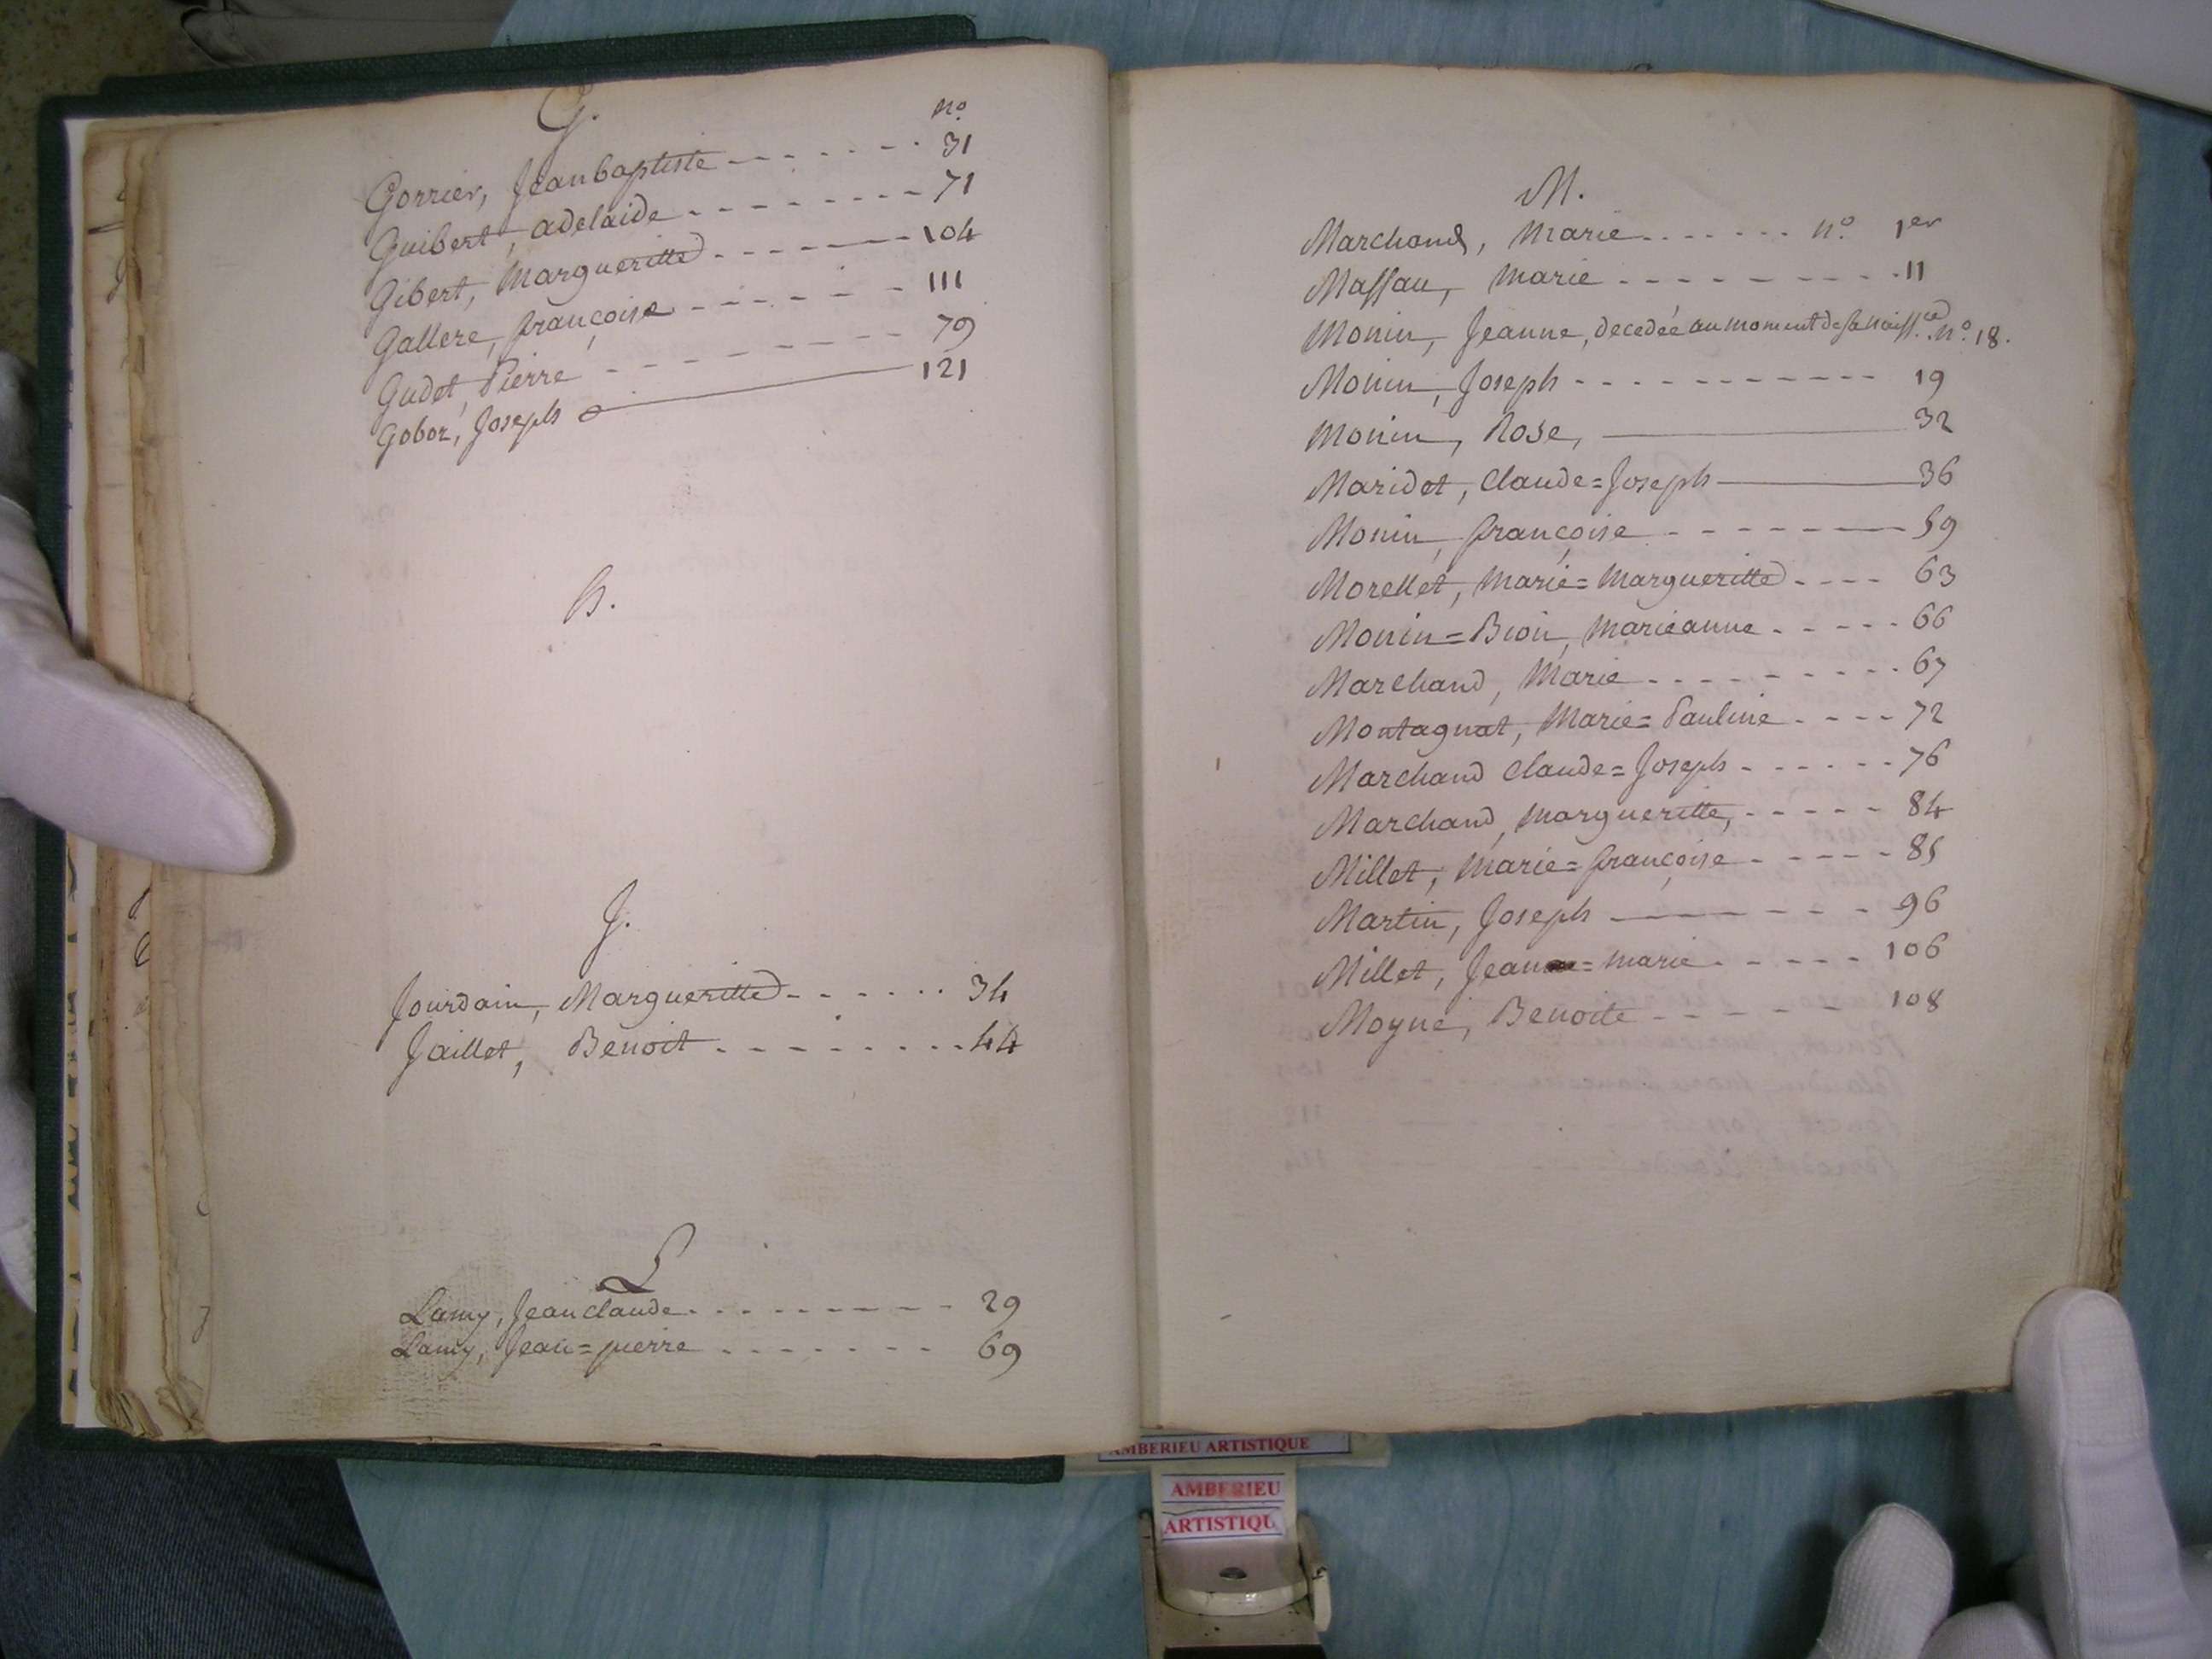 G.
n.o
Gorrier, Jean baptiste - - - - - - 31
Guibert, adelaide - - - - - - - - 71
Gibert, Margueritte - - - - - - 104
Gallere, françoise - - - - - - 111
Gudet, Pierre - - - - - - - - 79
Goboz, Joseph 121
h.
J.
Jourdain, Margueritte - - - - - - 34
Jaillet, Benoit - - - - - - - - - 44
L
Lamy, Jean claude - - - - - - - - - 29
Lamy, Jean=pierre - - - - - - - 69
M.
Marchand, Marie - - - - - - - n.o 1er
Massau, Marie - - - - - - - - - 11
Monin, Jeanne, decedée au moment de sa naiss.ce n.o 18.
Monin, Joseph - - - - - - - - - - - 19
Monin, Rose, 32
Maridet, Claude=Joseph 36
Monin, françoise - - - - - - 59
Morellet, Marie=Margueritte - - - - 63
Monin=Bion, Marieanne - - - - - 66
Marchand, Marie - - - - - - - - - 67
Montagnat, Marie=Pauline - - - - 72
Marchand Claude=Joseph - - - - - - 76
Marchand, Margueritte, - - - - - 84
Millet, Marie=françoise - - - - - 85
Martin, Joseph - - - - - 96
Millet, Jean=marie - - - - - 106
Moyne, Benoite - - - - - 108
AMBERIEU ARTISTIQUE
AMBERIEU
ARTISTIQU